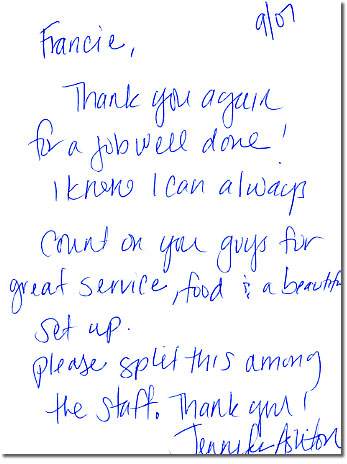 9/07
Francie,
Thank you again
for a job well done!
I know I can always
count on you guys for
great service, food & a beautiful
set up.
please split this among
the staff. Thank you!
Jennifer Ashton